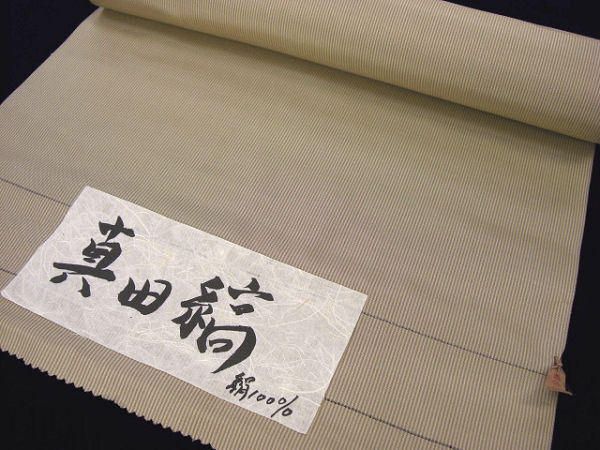 真田縞
絹100%